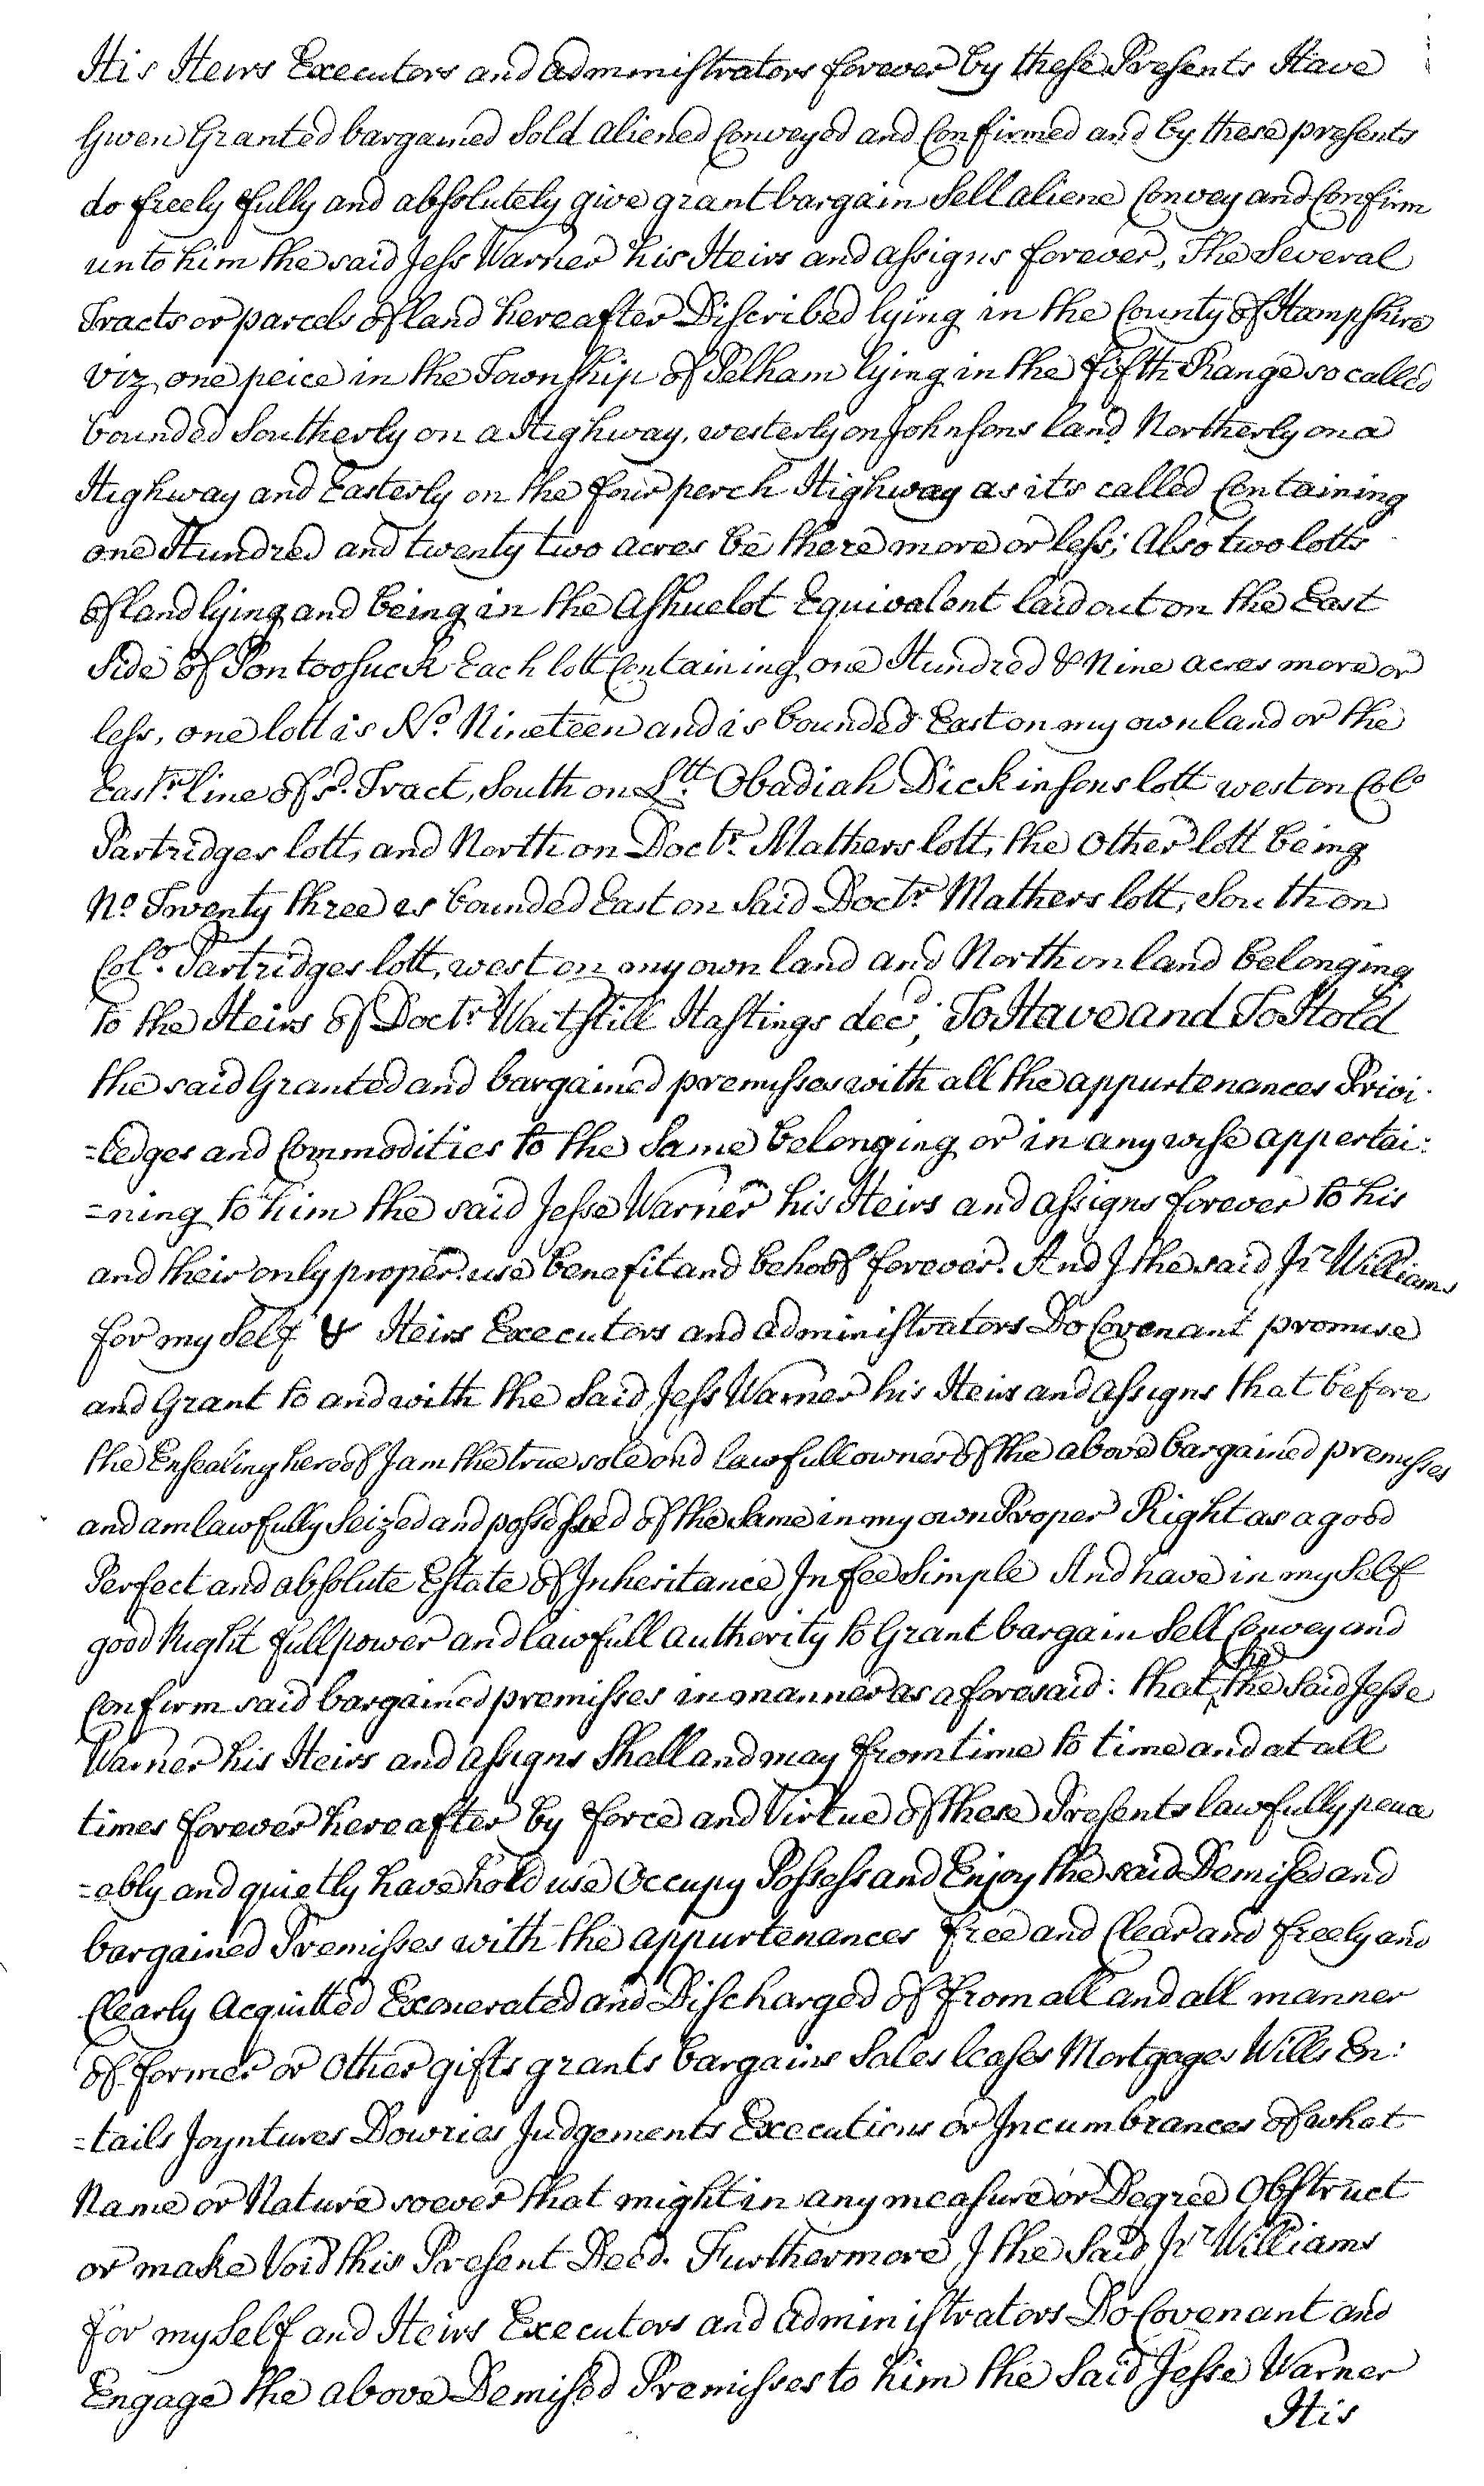 His Heirs Executors and administrators forever by these Presents Have
Given Granted bargained Sold aliened Conveyed and Confirmed and by these presents
do freely fully and absolutely give grant bargain Sell aliene Convey and Confirm
unto him the said Jess Warner his Heirs and assigns forever, The Several
Tracts or parcels of land hereafter Discribed lying in the County of Hampshire
Viz, one peice in the Township of Pelham lying in the fifth Range so called
bounded Southerly on a Highway, westerly on Johnsons land Northerly on a
Highway and Easterly on the four perch Highway as it's called Containing
one Hundred and twenty two acres be there more or less; Also two lotts
of land lying and being in the Ashuelot Equivalent laid out on the East
Side of Pontoosuck Each lott Containing one Hundred & Nine acres more or
less, one lott is No. Nineteen and is bounded East on my own land or the
Eastr. line of sd. Tract, South on Ltt. Obadiah Dickinsons lott west on Colo
Partridges lott, and North on Doctr. Mathers lott, the Other lott being
No Twenty three is bounded East on Said Doctr Mathers lott, South on
Colo. Partridges lott, west on my own land and North on land belonging
to the Heirs of Doctr Waitstill Hastings decd; To Have and To Hold
the said Granted and bargained premisses with all the appurtenances Privi-
=ledges and Commodities to the Same belonging or in any wise appertai:
=ning to him the said Jesse Warner his Heirs and assigns forever to his
and their only proper use benefit and behoof forever. And I the said Jr Williams
for my Self & Heirs Executors and administrators Do Covenant promise
and Grant to and with the Said Jess Warner his Heirs and assigns that before
the Ensealing hereof I am the true sole and lawfull owner of the above bargained premisses
and am lawfully Seized and possessed of the Same in my own Proper Right as a good
Perfect and absolute Estate of Inheritance In fee Simple And have in my Self
good Right full power and lawfull authority to Grant bargain Sell Convey and
Confirm said bargained premisses in manner as aforesaid: that the Said Jesse
Warner his Heirs and assigns Shall and may from time to time and at all
times forever hereafter by force and Virtue of these Presents lawfully peace
=ably and quietly have hold use Occupy Possess and Enjoy the said Demised and
bargained Premisses with the appurtenances free and Clear and freely and
Clearly Acquitted Exonerated and Discharged of from all and all manner
of former or Other gifts grants bargains Sales leases Mortgages Wills En:
=tails Joyntures Dowries Judgements Executions or Incumbrances of what
Name or Nature soever that might in any measure or Degree Obstruct
or make Void this Present Deed. Furthermore I the Said Jr Williams
for my Self and Heirs Executors and administrators Do Covenant and
Engage the above Demised Premisses to him the Said Jesse Warner
His